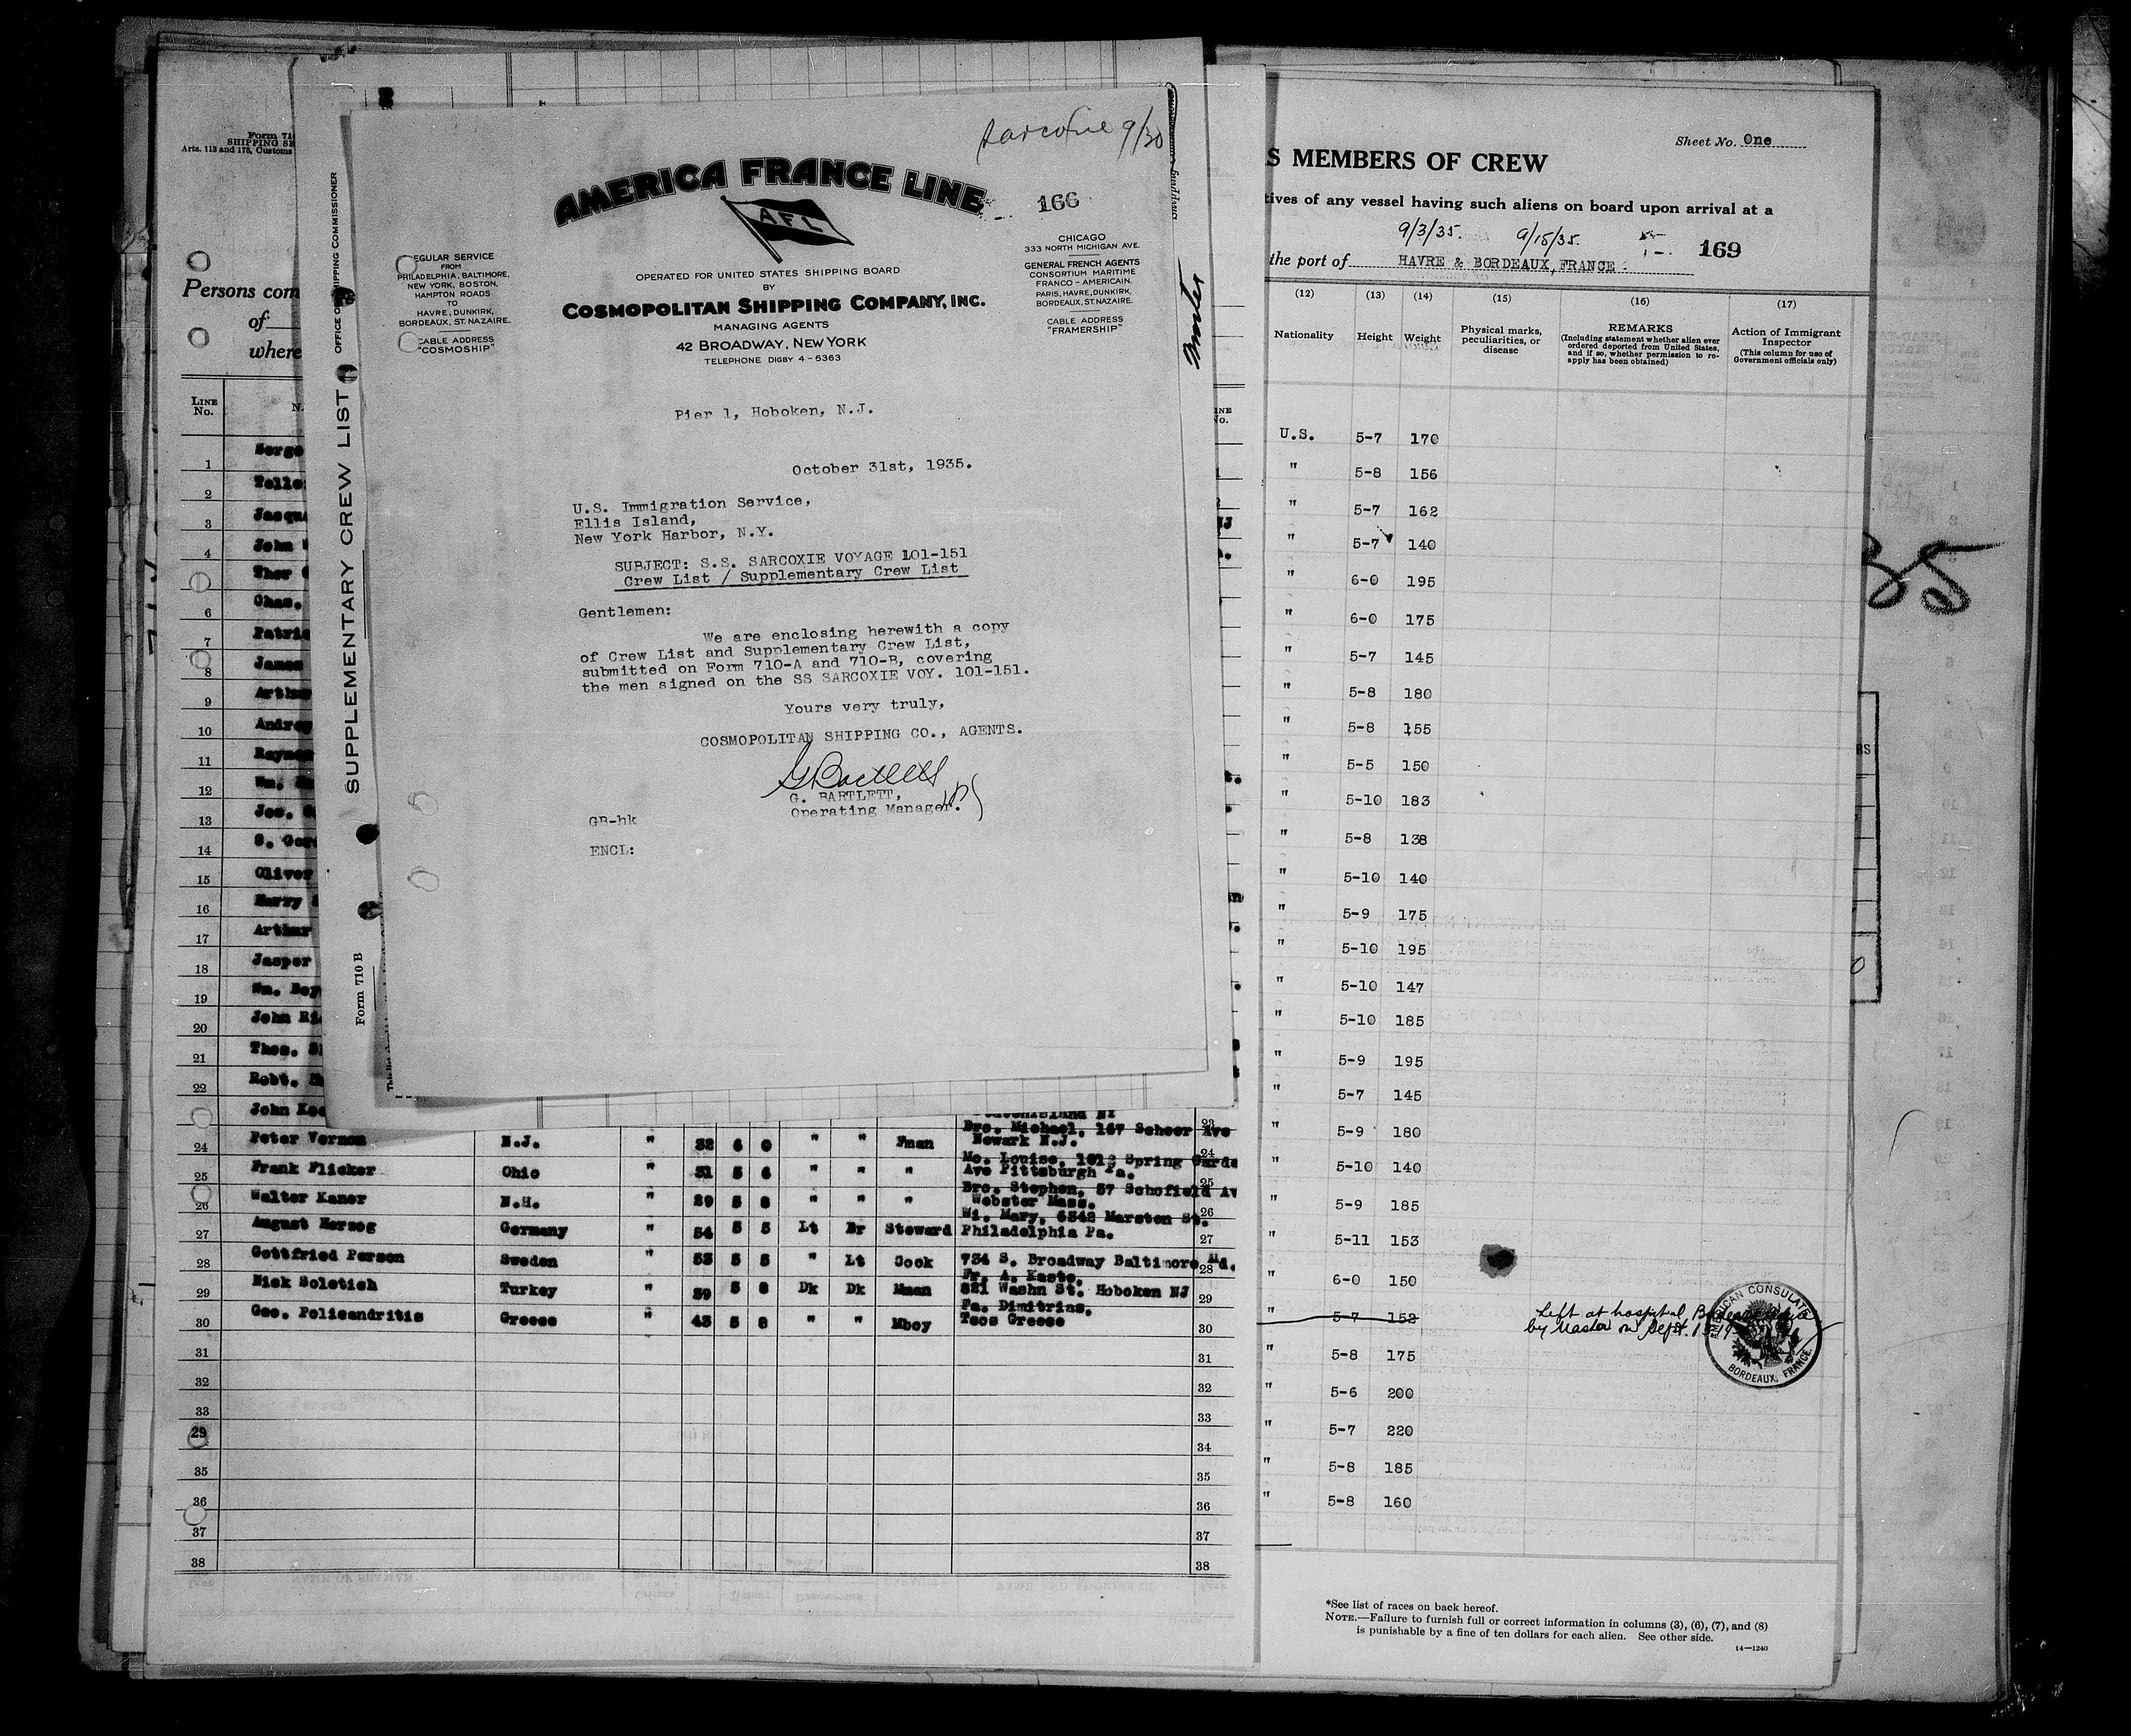 Sarcoxie 9/30
AMERICA FRANCE LINE
AFL
166
REGULAR SERVICE
FROM
PHILADELPHIA, BALTIMORE,
NEW YORK, BOSTON,
HAMPTON ROADS
TO
HAVRE, DUNKIRK,
BORDEAUX, ST. NAZAIRE.
CABLE ADDRESS
"COSMOSHIP"
OPERATED FOR UNITED STATES SHIPPING BOARD
BY
COSMOPOLITAN SHIPPING COMPANY, INC.
MANAGING AGENTS
42 BROADWAY, NEW YORK
TELEPHONE DIGBY 4-6363
CHICAGO
333 NORTH MICHIGAN AVE.
GENERAL FRENCH AGENTS
CONSORTIUM MARITIME
FRANCO-AMERICAIN.
PARIS, HAVRE, DUNKIRK,
BORDEAUX, ST. NAZAIRE.
CABLE ADDRESS
"FRAMERSHIP"
Pier 1, Hoboken, N.J.
October 31st, 1935.
U.S. Immigration Service,
Ellis Island,
New York Harbor, N.Y.
SUBJECT: S.S. SARCOXIE VOYAGE 101-151
Crew List / Supplementary Crew List
Gentlemen:
We are enclosing herewith a copy
of Crew List and Supplementary Crew List,
submitted on Form 710-A and 710-B, covering
the men signed on the SS SARCOXIE VOY. 101-151.
Yours very truly,
COSMOPOLITAN SHIPPING CO., AGENTS.
G Bartlett
G. BARTLETT,
Operating Manager.
GB-hk
ENCL:
OFFICE OF SHIPPING COMMISSIONER
SUPPLEMENTARY CREW LIST
Form 710 B
Master
Form 71
SHIPPING SE
Arts. 113 and 175, Customs
Persons com
of
where
LINE
No.
N
1 Serge
2 Telle
3 Jacqu
4 John
Thor
6 Chas.
7 Patric
8 James
9 Arthu
10 Andrew
11 Raymon
12 Wm.
13 Jos.
14 S. Gor
15 Oliver
16 Harry
17 Arthur
18 Jasper
19 Wm. Boy
20 John Ri
21 Thos. S
22 Robt.
John Kee
24 Peter Vernon N.J. " 32 6 0 " " Fman Bro. Michael, 167 Scheer Ave
Newark N.J.
25 Frank Flicker Ohio " 31 5 6 " " " Mo. Louise, 1012 Spring Garde
Ave Pittsburgh Pa.
26 Walter Kaner N.H. " 29 5 8 " " " Bro. Stephen, 57 Schofield Av
Webster Mass.
27 August Herzog Germany " 54 5 5 Lt Br Steward Wi. Mary, 6342 Marston St.
Philadelphia Pa.
28 Gottfried Person Sweden " 53 5 5 " Lt Cook 734 S. Broadway Baltimore Md.
29 Nick Soletich Turkey " 39 5 8 Dk Dk Mman Fr. A. Kaste,
821 Washn St. Hoboken NJ
30 Geo. Policandritis Greece " 43 5 8 " " Mboy Fa. Dimitrias,
Tsos Greece
31
32
33
29
35
36
37
38
23
24
25
26
27
28
29
30
31
32
33
34
35
36
37
38
Sheet No. One
S MEMBERS OF CREW
tives of any vessel having such aliens on board upon arrival at a
9/3/35. 9/15/35.
the port of HAVRE & BORDEAUX, FRANCE
169
(12) (13) (14) (15) (16) (17)
Nationality Height Weight
Physical marks,
peculiarities, or
disease
REMARKS
(Including statement whether alien ever
ordered deported from United States,
and if so, whether permission to re-
apply has been obtained)
Action of Immigrant
Inspector
(This column for use of
Government officials only)
U.S. 5-7 170
" 5-8 156
" 5-7 162
" 5-7 140
" 6-0 195
" 6-0 175
" 5-7 145
" 5-8 180
" 5-8 155
" 5-5 150
" 5-10 183
" 5-8 138
" 5-10 140
" 5-9 175
" 5-10 195
" 5-10 147
" 5-10 185
" 5-9 195
" 5-7 145
" 5-9 180
" 5-10 140
" 5-9 185
" 5-11 153
" 6-0 150
" 5-7 152 Left at hospital Bordeaux
by Master on Sept. 1
AMERICAN CONSULATE
BORDEAUX, FRANCE.
" 5-8 175
" 5-6 200
" 5-7 220
" 5-8 185
" 5-8 160
*See list of races on back hereof.
NOTE.—Failure to furnish full or correct information in columns (3), (6), (7), and (8)
is punishable by a fine of ten dollars for each alien. See other side.
14—1240